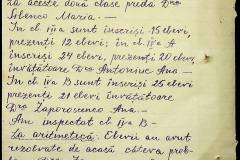 La aceste două clase predă Dra
Silenco Maria. —
În cl. IIIa sunt înscriși 15 elevi,
prezenți 12 elevi; în cl. IVa A
înscriși 24 elevi, prezenți 20 elevi
învățătoare Dra Antoniuc Ana —
În cl. IVa B sunt înscriși 25 elevi
prezenți 21 elevi învățătoare
Dra Zaporosenco Ana. —
Am inspectat cl. IVa B —
La aritmetică. Elevii au avut
rezolvate de acasă câteva prob-